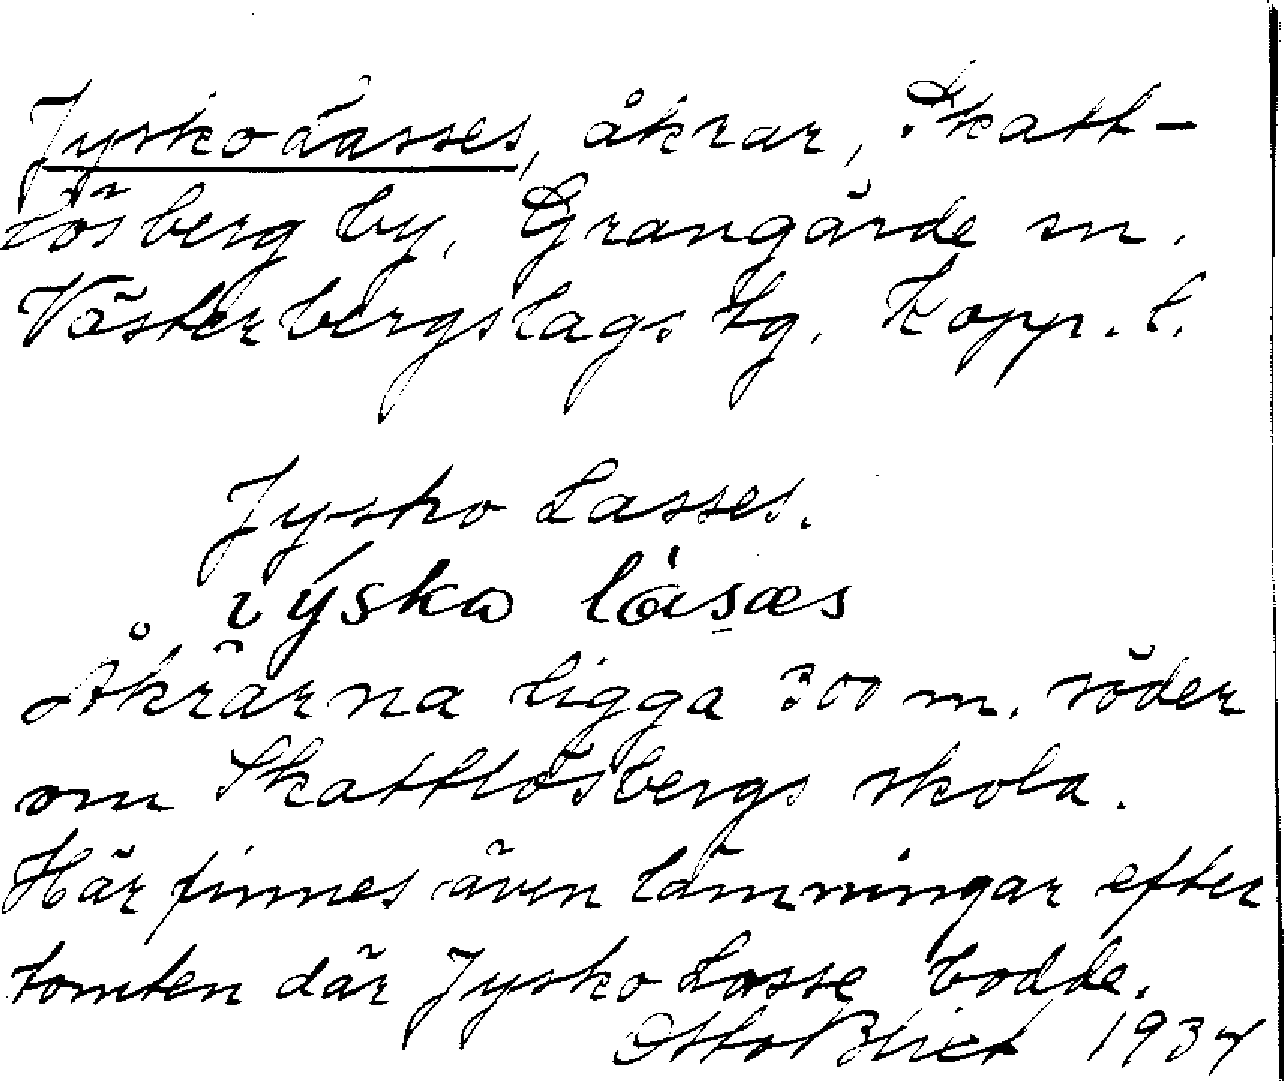 Jyskolasses, åkrar, Skatt-
lösberg by, Grangärde sn.
Västerbergslags tg. Kopp. l.
Jysko Lasses.
Åkrarna ligga 300 m. söder
om Skattlösbergs skola.
Här finnes även lämningar efter
tomten där Jysko Lasse bodde.
Otto Blixt 1934